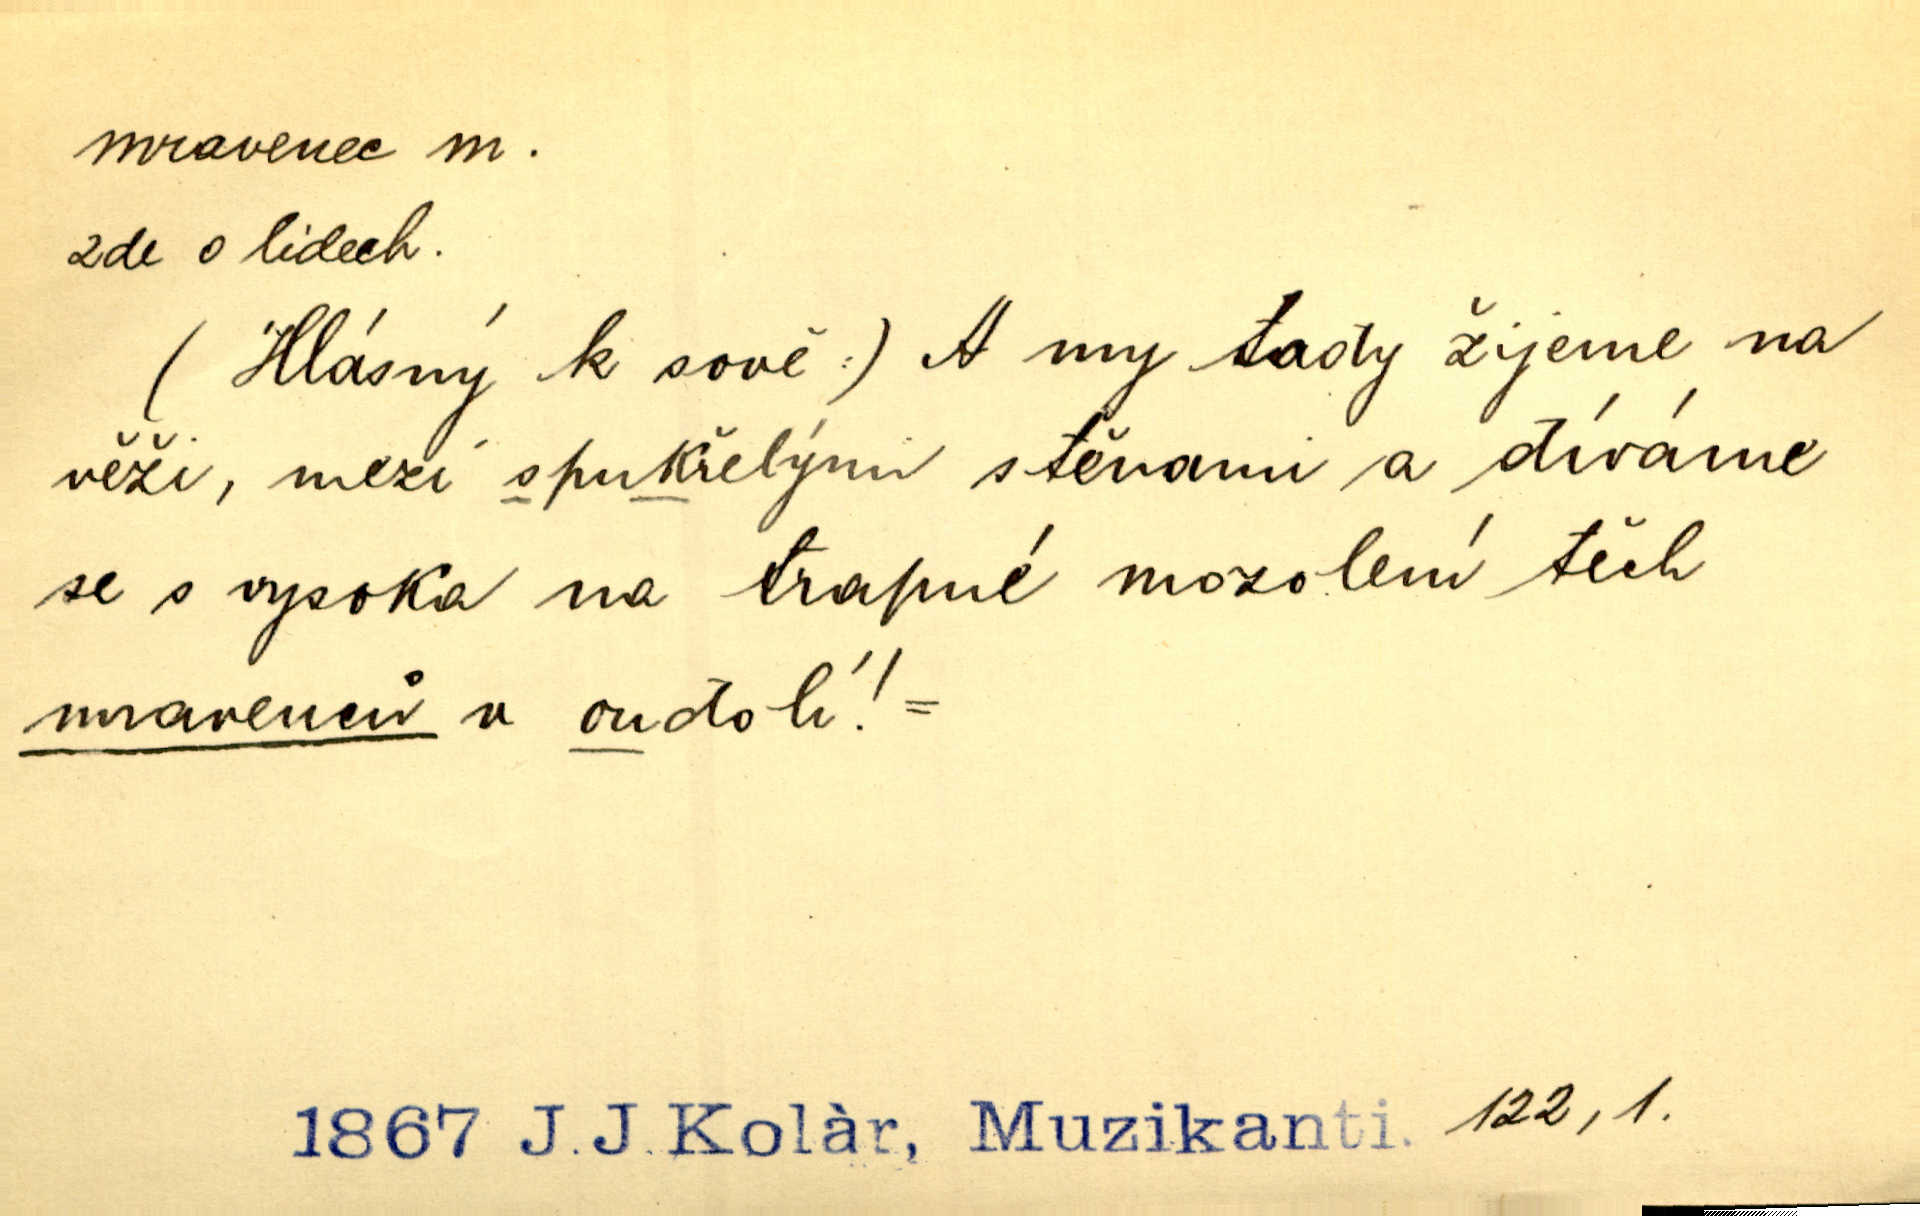 mravenec m.
zde o lidech.
( Hlásný k sově :) A my tady žijeme na
věži, mezi spukřelými stěnami a díváme
se s vysoka na trapné mozolení těch
mravenců v oudolí! =
1867 J. J. Kolàr, Muzikanti. 122, 1.